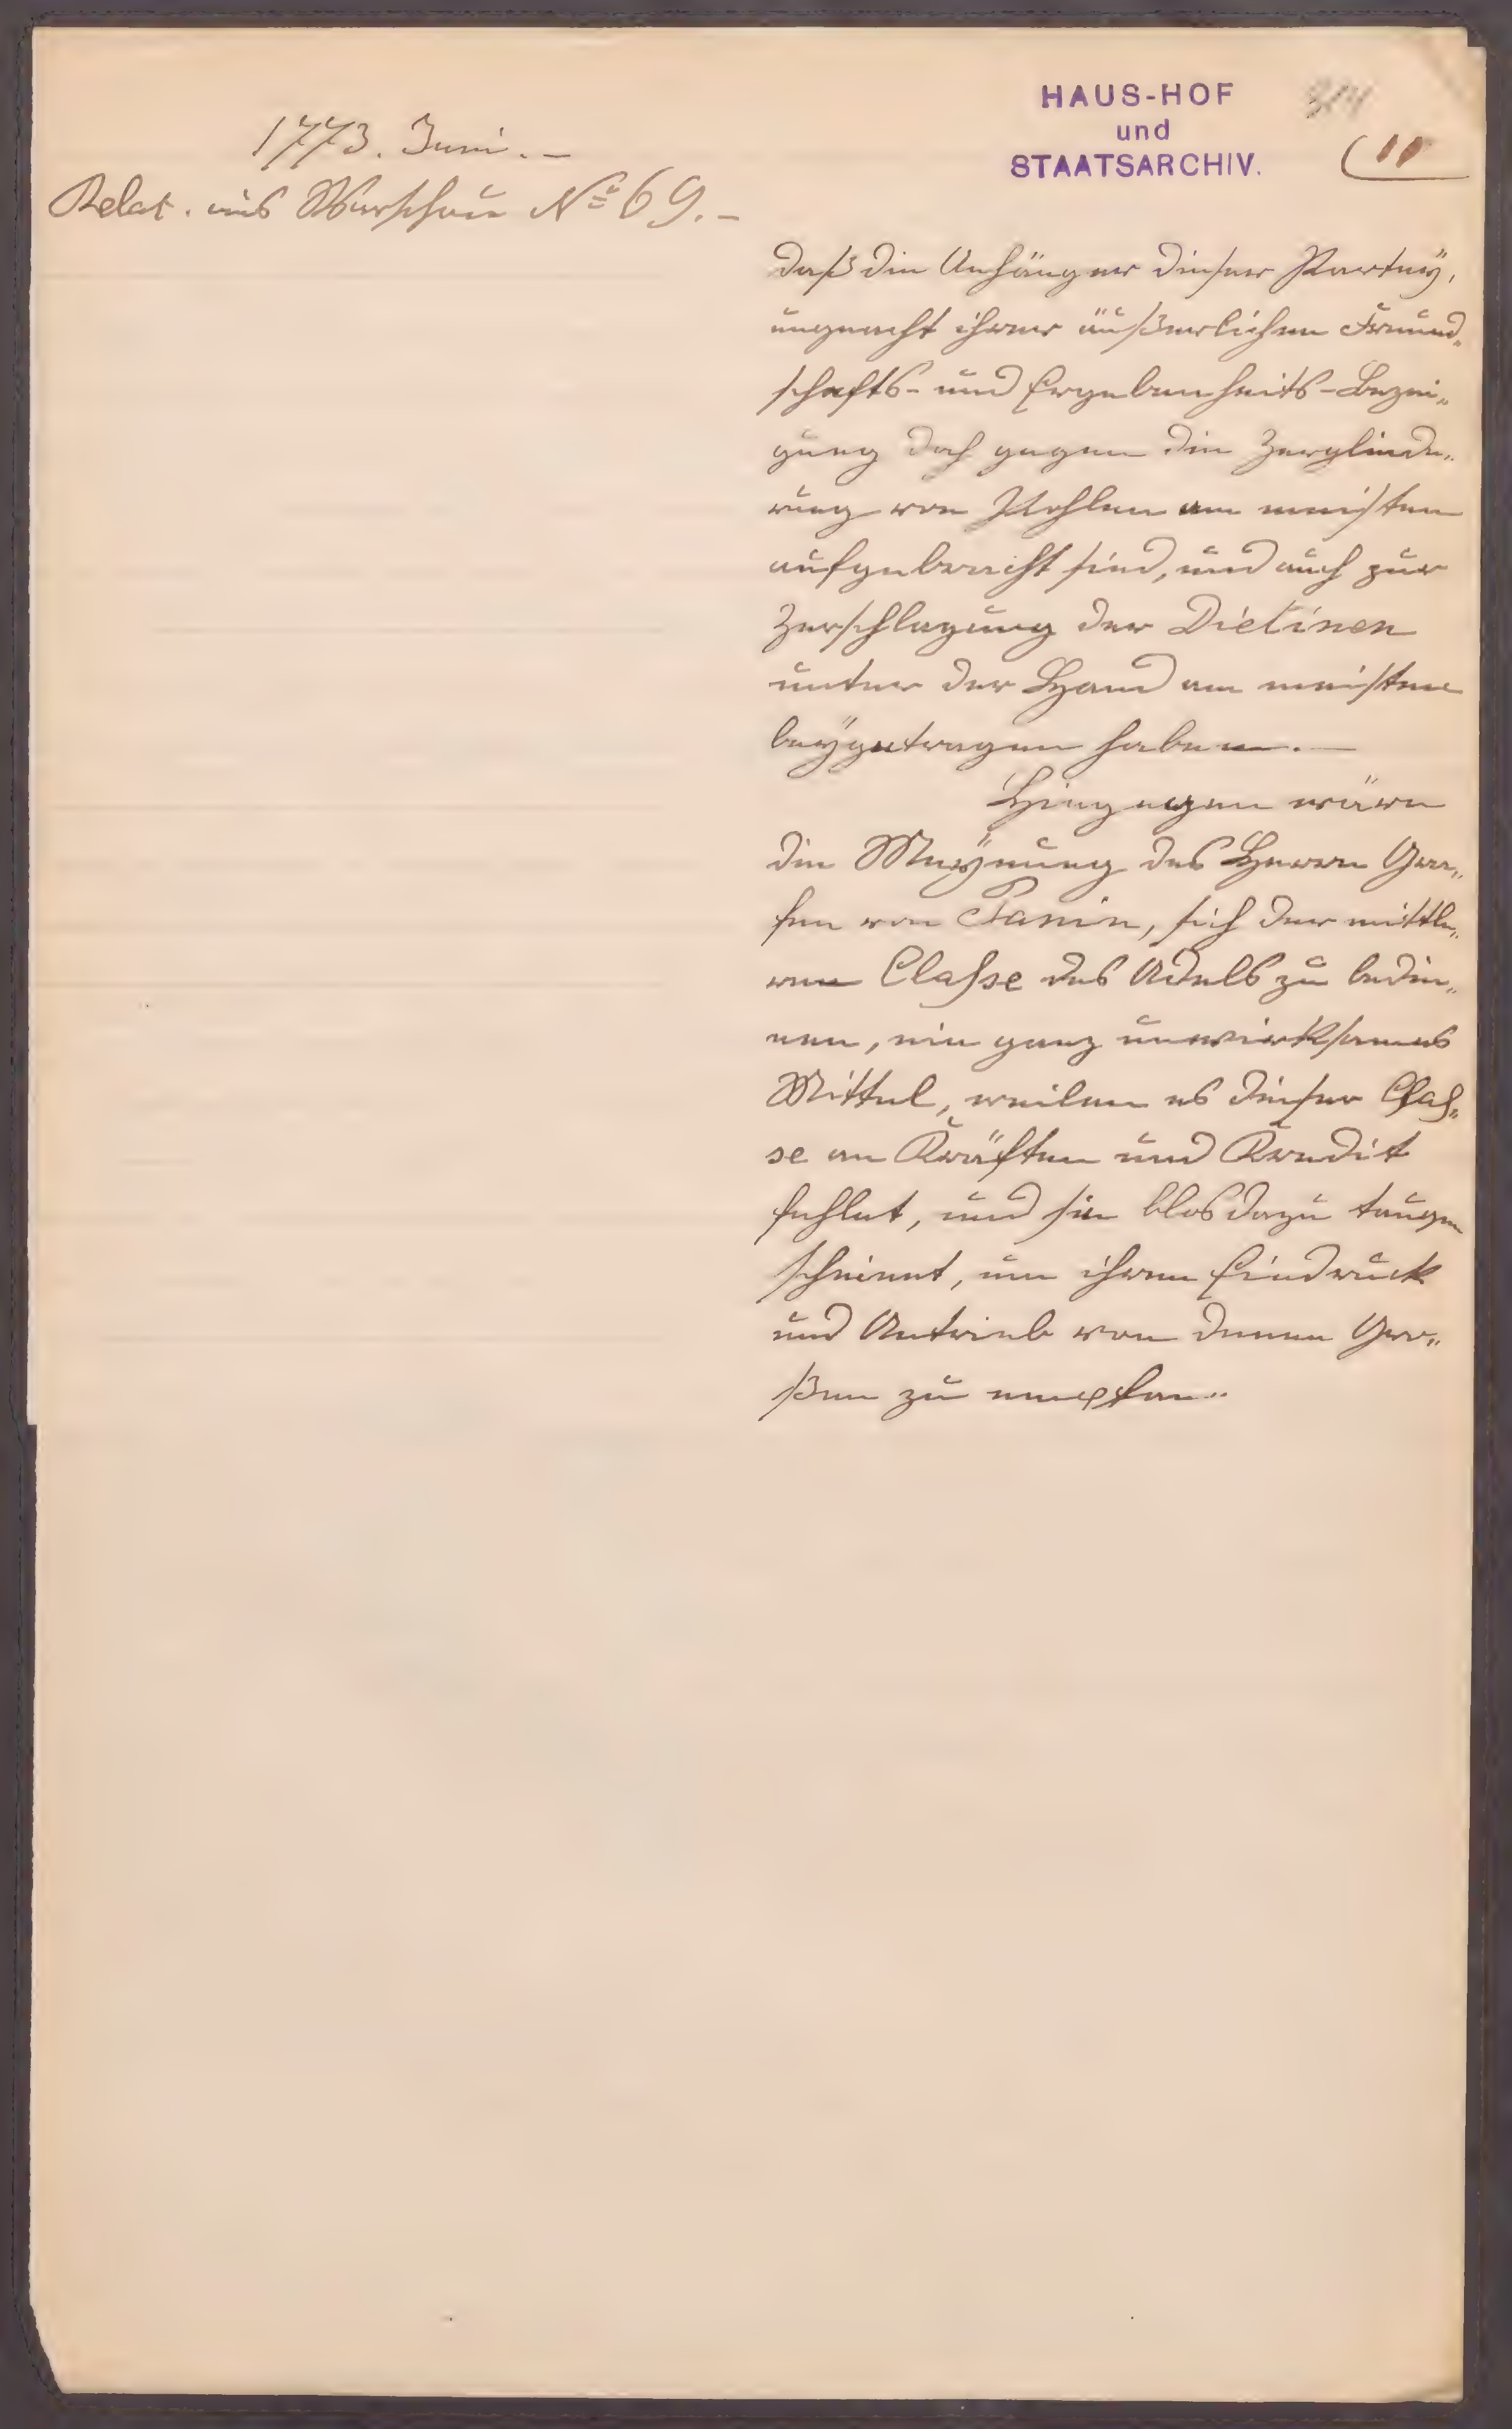 1773. Juni. –
Relat. aus Warschau № 69. –
HAUS-HOF
und
STAATSARCHIV.
314
11
daß die Anhänger dieser Partey,
ungeacht ihrer äußerlichen Freund„
schafts- und Ergebenheits-Bezei„
gung doch gegen die Zergliede„
rung von Pohlen am meisten
aufgebracht sind, und auch zur
Zerschlagung der Dietinen
unter der Hand am meisten
beygetragen haben. —
Hingegen wäre
die Meynung des Herrn Gra„
fen von Panin, sich der mittle„
ren Classe des Adels zu bedie„
nen, ein ganz unwirksames
Mittel, weilen es dieser Clas„
se an Kräften und Kredit
fehlet, und sie blos dazu taugen
scheinet, um ihren Eindruck
und Antrieb von denen Gro„
ßen zu empfan„